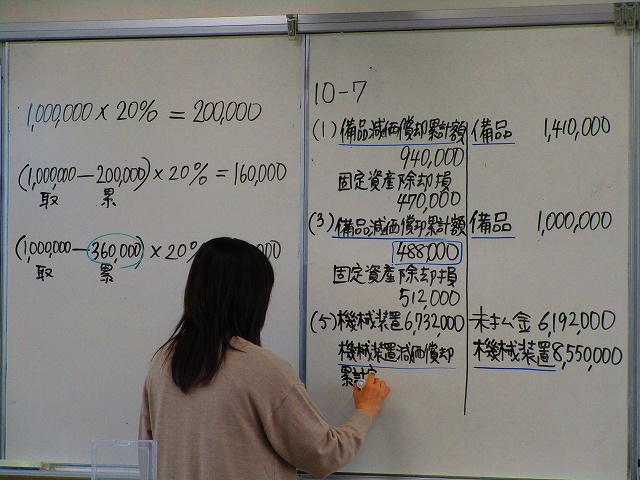 1,000,000 × 20% = 200,000
(1,000,000 − 200,000) × 20% = 160,000
取 累
(1,000,000 − 360,000) × 20%
取 累
10-7
(1) 備品減価償却累計額 備品 1,410,000
940,000
固定資産除却損
470,000
(3) 備品減価償却累計額 備品 1,000,000
488,000
固定資産除却損
512,000
(5) 機械装置 6,732,000 未払金 6,192,000
機械装置減価償却 機械装置 8,550,000
累計